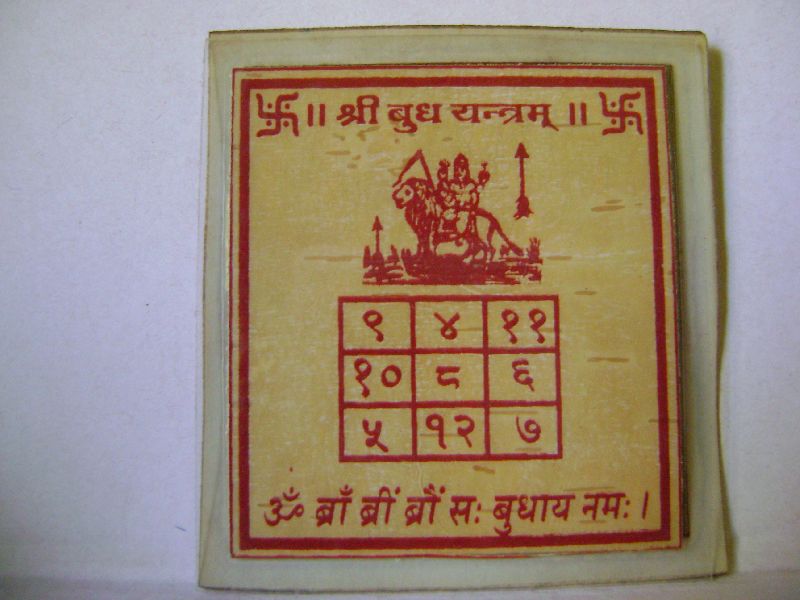 ॥ श्री बुध यन्त्रम् ॥
९ ४ ११
१० ८ ६
५ १२ ७
ॐ ब्राँ ब्रीं ब्रौं सः बुधाय नमः।